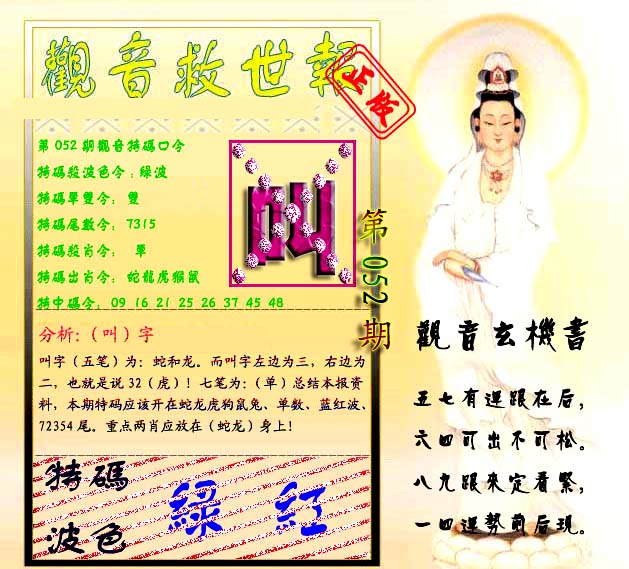 觀音救世報
正版
第052期觀音特碼口令
特碼殺波色令:綠波
特碼單雙令: 雙
特碼尾數令: 7315
特碼殺肖令: 單
特碼出肖令: 蛇龍虎猴鼠
特中碼令: 09 16 21 25 26 37 45 48
叫
第052期
分析:(叫)字
叫字(五笔)为:蛇和龙。而叫字左边为三,右边为
二,也就是说 32(虎)!七笔为:(单)总结本报资
料,本期特码应该开在蛇龙虎狗鼠兔、单数、蓝红波、
72354 尾。重点两肖应放在(蛇龙)身上!
特碼
波色
綠 紅
觀音玄機書
五七有运跟在后,
六四可出不可松。
八九跟來定看緊,
一四运勢前后現。